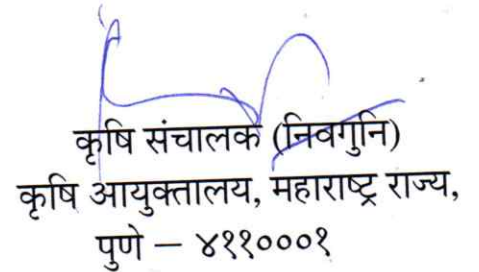 कृषि संचालक (निवगुनि)
कृषि आयुक्तालय, महाराष्ट्र राज्य,
पुणे – ४११०००१